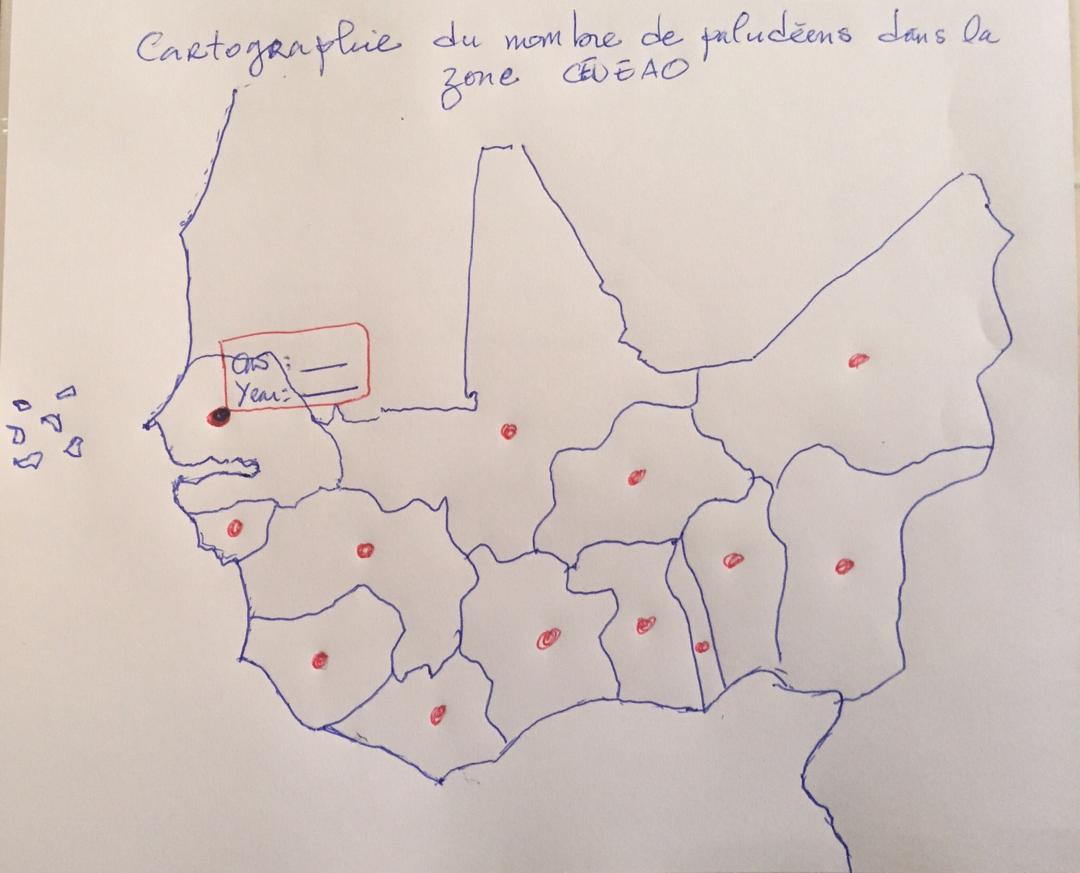 Cartographie du nombre de paludéens dans la
zone CEDEAO
Cas: ___
Year: ___